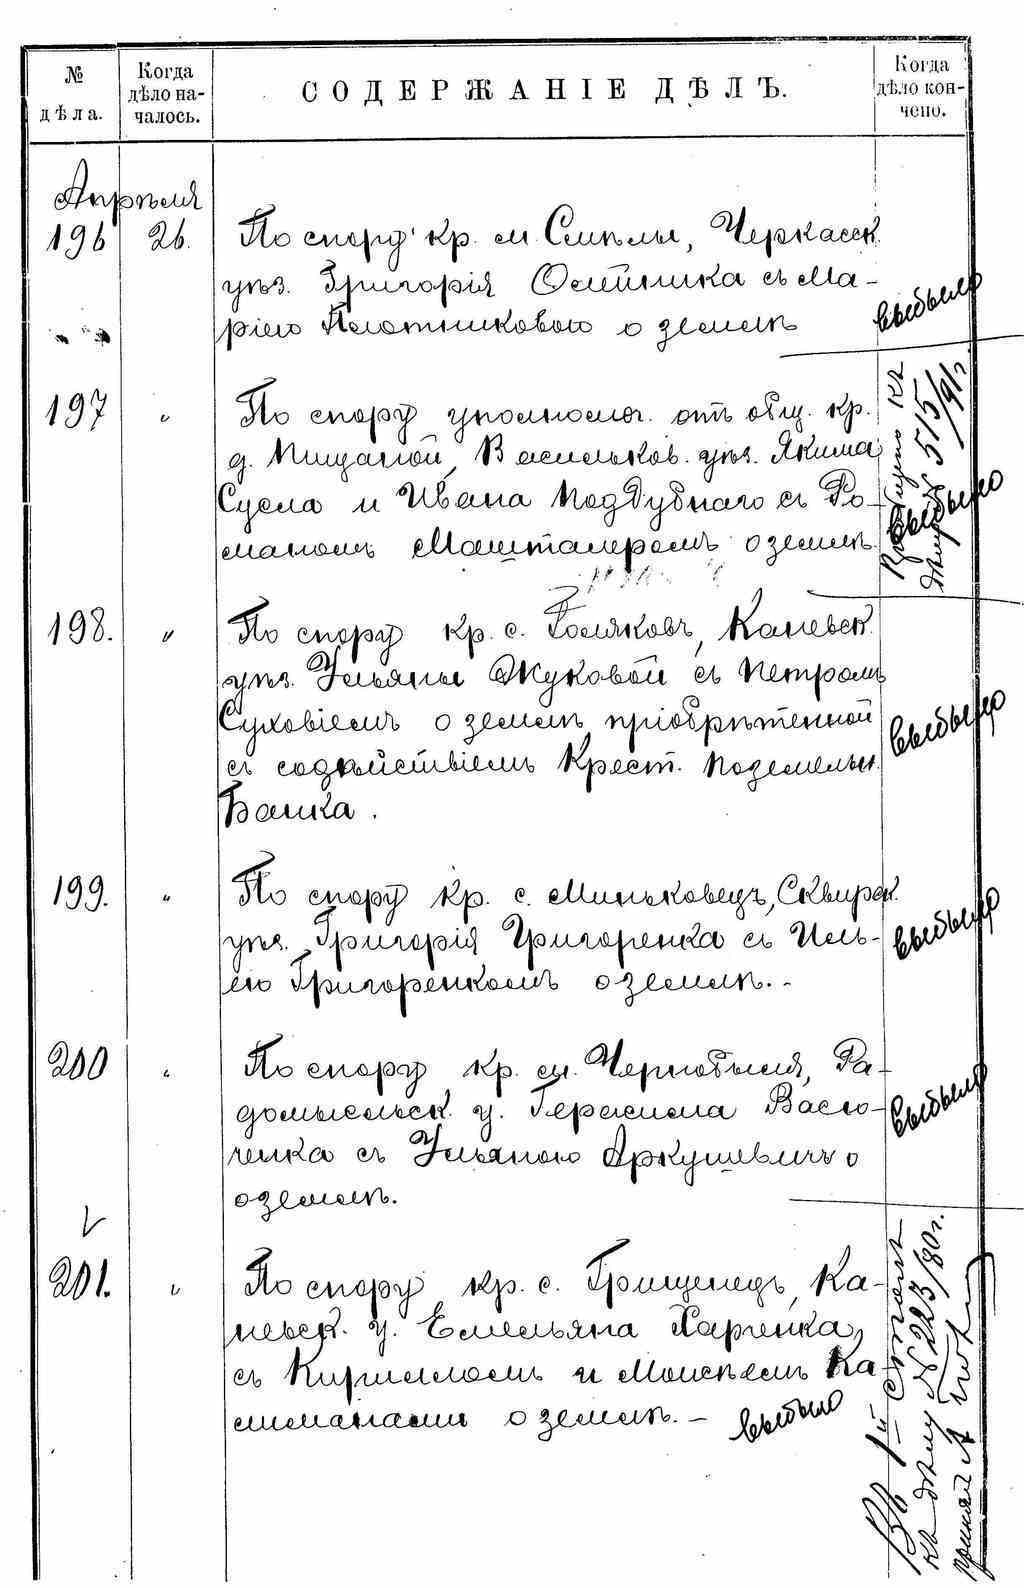 № дѣла.
Когда дѣло на-чалось.
СОДЕРЖАНІЕ ДѢЛЪ.
Когда дѣло кон-чено.
Апрѣля
196 26. По спору кр. м. Смѣлы, Черкасск.
уѣз. Григорія Олейника съ Ма-
ріею Плотниковою о землѣ
выбыло
197 " По спору уполномоч. отъ общ. кр.
д. Пищаной, Васильков. уѣз. Якима
Сусла и Ивана Поддубнаго съ Ро-
маномъ Машталеромъ о землѣ
къ
дѣлу № 515/91 г.
выбыло
198. " По спору кр. с. Голяковъ, Каневск.
уѣз. Ульяны Жуковой съ Петромъ
Суховіемъ о землѣ, пріобрѣтенной
съ содѣйствіемъ Крест. Поземельн.
Банка.
выбыло
199. " По спору кр. с. Миньковецъ, Сквирск.
уѣз. Григорія Григоренка съ Иль-
ею Григоренкомъ о землѣ.-
выбыло
200 " По спору кр. м. Чернобыля, Ра-
домысльск. у. Герасима Васю-
ченка съ Ульяною Аркушевичъ о
о землѣ.
выбыло
V
201. " По спору кр. с. Грищенецъ, Ка-
невск. у. Емельяна Харченка,
съ Кирилломъ и Моисѣемъ Ка-
лиманами о землѣ. -
выбыло
Въ 1й Столъ
къ дѣлу № 223/80 г.
принялъ А